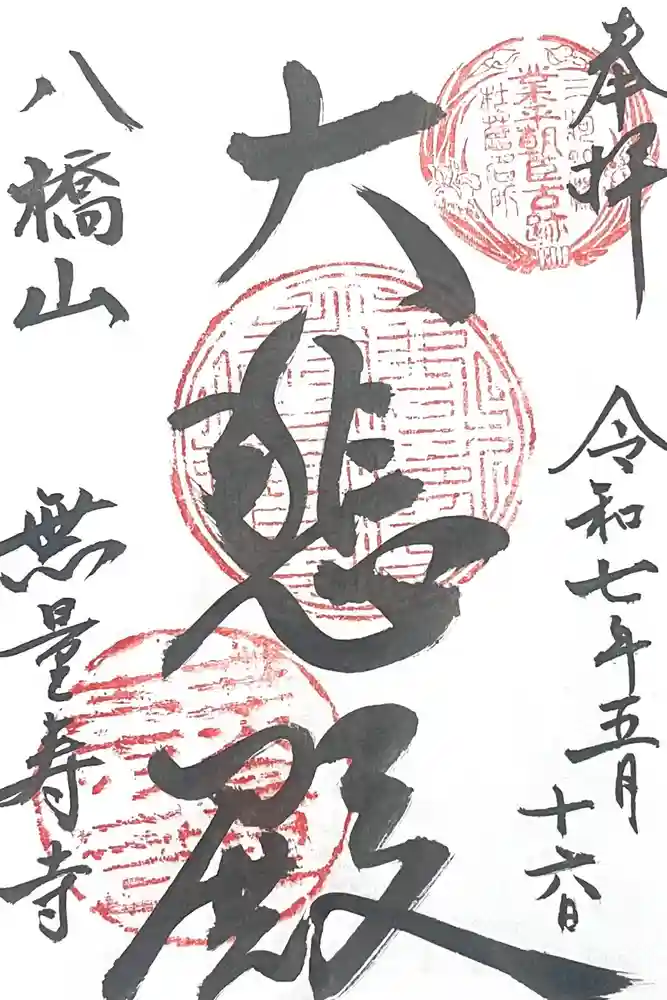 奉拝
令和七年五月
十六日
業平朝臣古跡
大悲殿
八橋山
無量寿寺